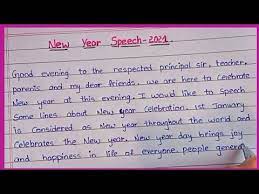 New Year Speech-2021.
Good evening to the respected principal sir, teacher,
parents and my dear friends. we are here to celebrate
New year at this evening. I would like to speech
some lines about New year celebration. 1st January
is considered as New year throughout the world and
celebrates the New year. New year day brings joy
and happiness in life of everyone. people genera